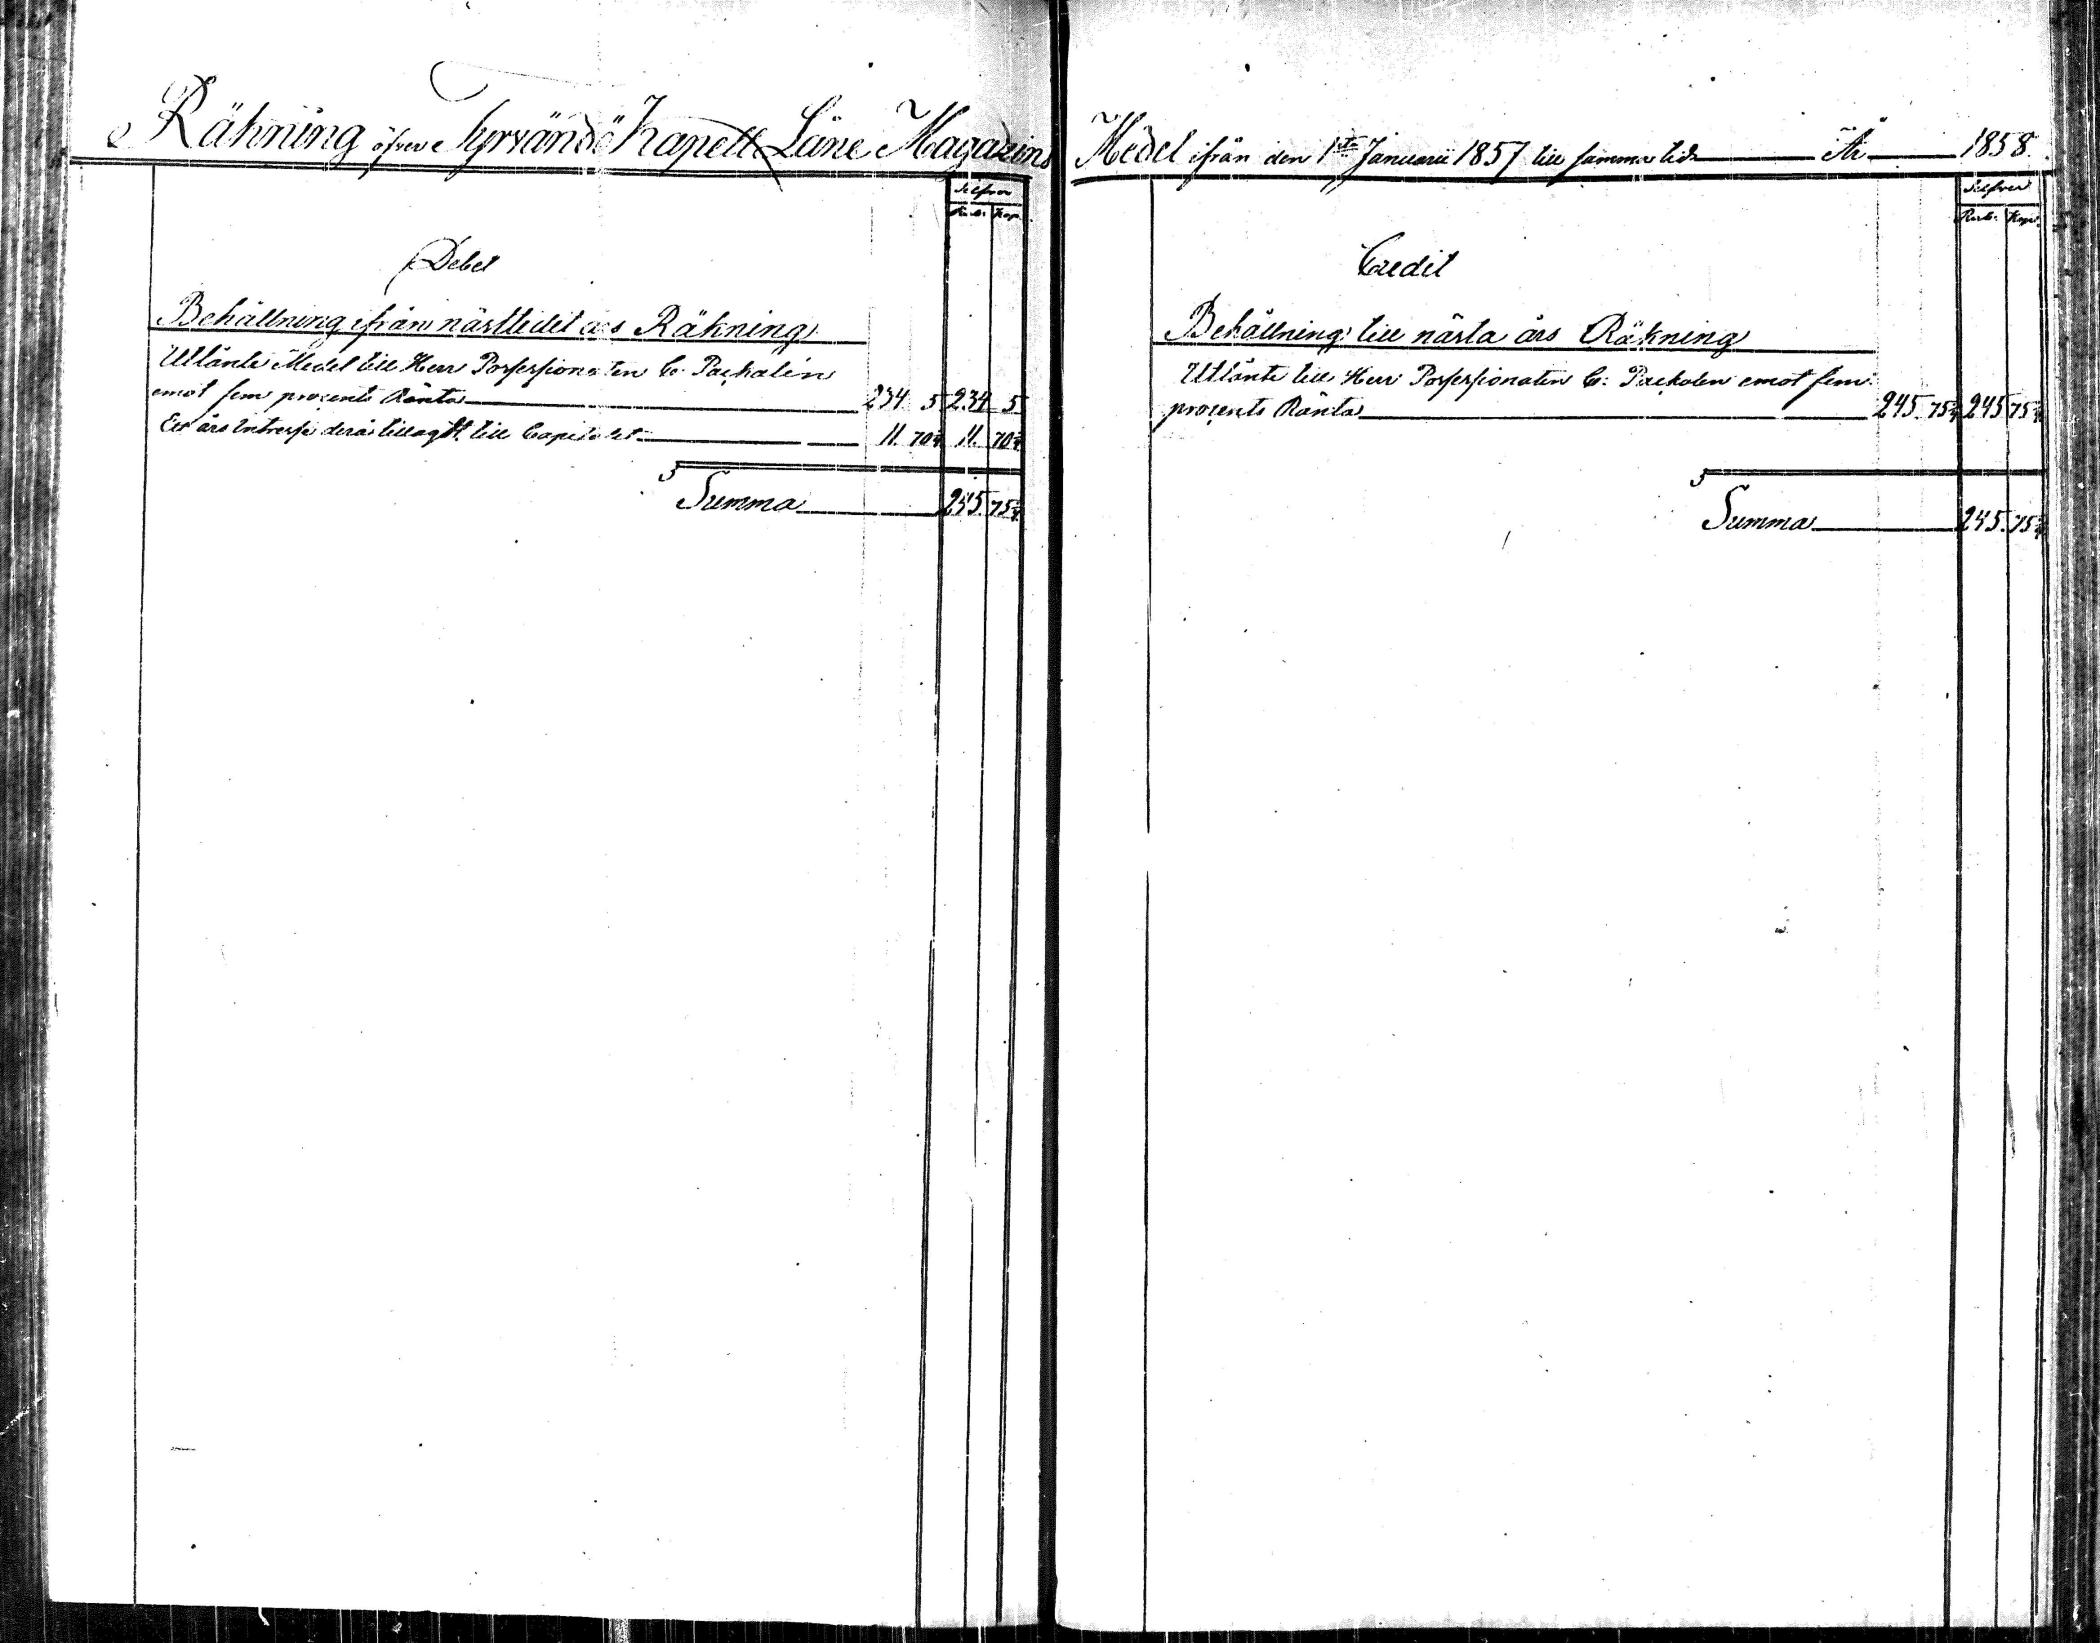 Räkning öfver Tyrvändö Kapell Låne Magazins
Silfver
Rub: Kop:
Debet
Behållning ifrån nästledet års Räkning
Utlånte Medel till Herr Possessionaten C. Packalén
emot fem procents Ränta 234 5 234 5
Ett års Intresse derå tillagdt till Capitalet 11. 70¼ 11. 70¼
Summa 245. 75¼
Medel ifrån den 1sta Januarii 1857 till samma tid År 1858.
Silfver
Rub: Kop:
Credit
Behållning till nästa års Räkning
Utlånte till Herr Possessionaten C: Packalen emot fem
procents Ränta 245. 75¼ 245 75¼
Summa 245. 75¼